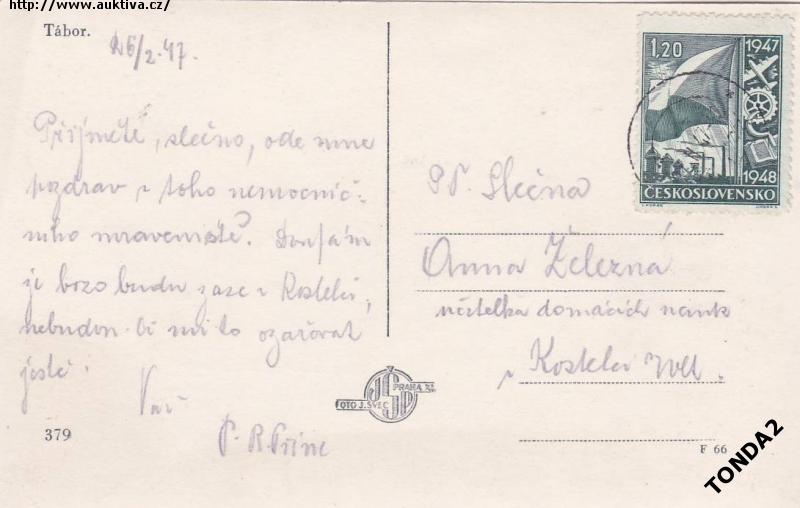 http://www.auktiva.cz/
Tábor.
26/2. 47.
Přijměte, slečno, ode mne
pozdrav z toho nemocnič-
ního mraveniště. Doufám
že brzo budu zase v Kostelci,
nebudou-li mi to ozařovat
ještě.
Váš
P. R. Princ
379
1,20
1947
1948
ČESKOSLOVENSKO
PT. Slečna
Anna Železná
učitelka domácích nauk
v Kostelci
FOTO J. ŠVEC
PRAHA
F 66
TONDA2